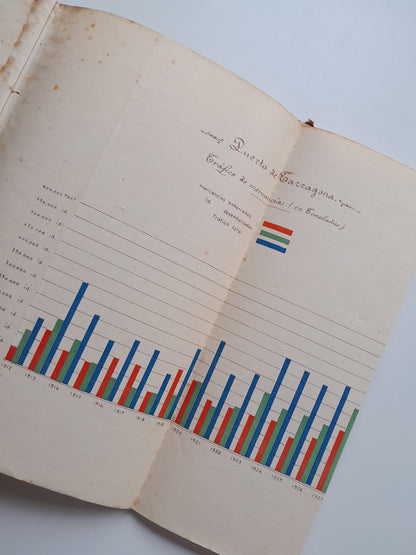 Puerto de Tarragona.
Tráfico de mercancías (en Toneladas)
Mercancías embarcadas
Id. desembarcadas
Tráfico total
600.000 Tons
550.000 id.
500.000 id.
450.000 id.
400.000 id.
350.000 id.
300.000 id.
id.
id.
id.
id.
id.
1912
1913
1914
1915
1916
1917
1918
1919
1920
1921
1922
1923
1924
1925
1926
1927